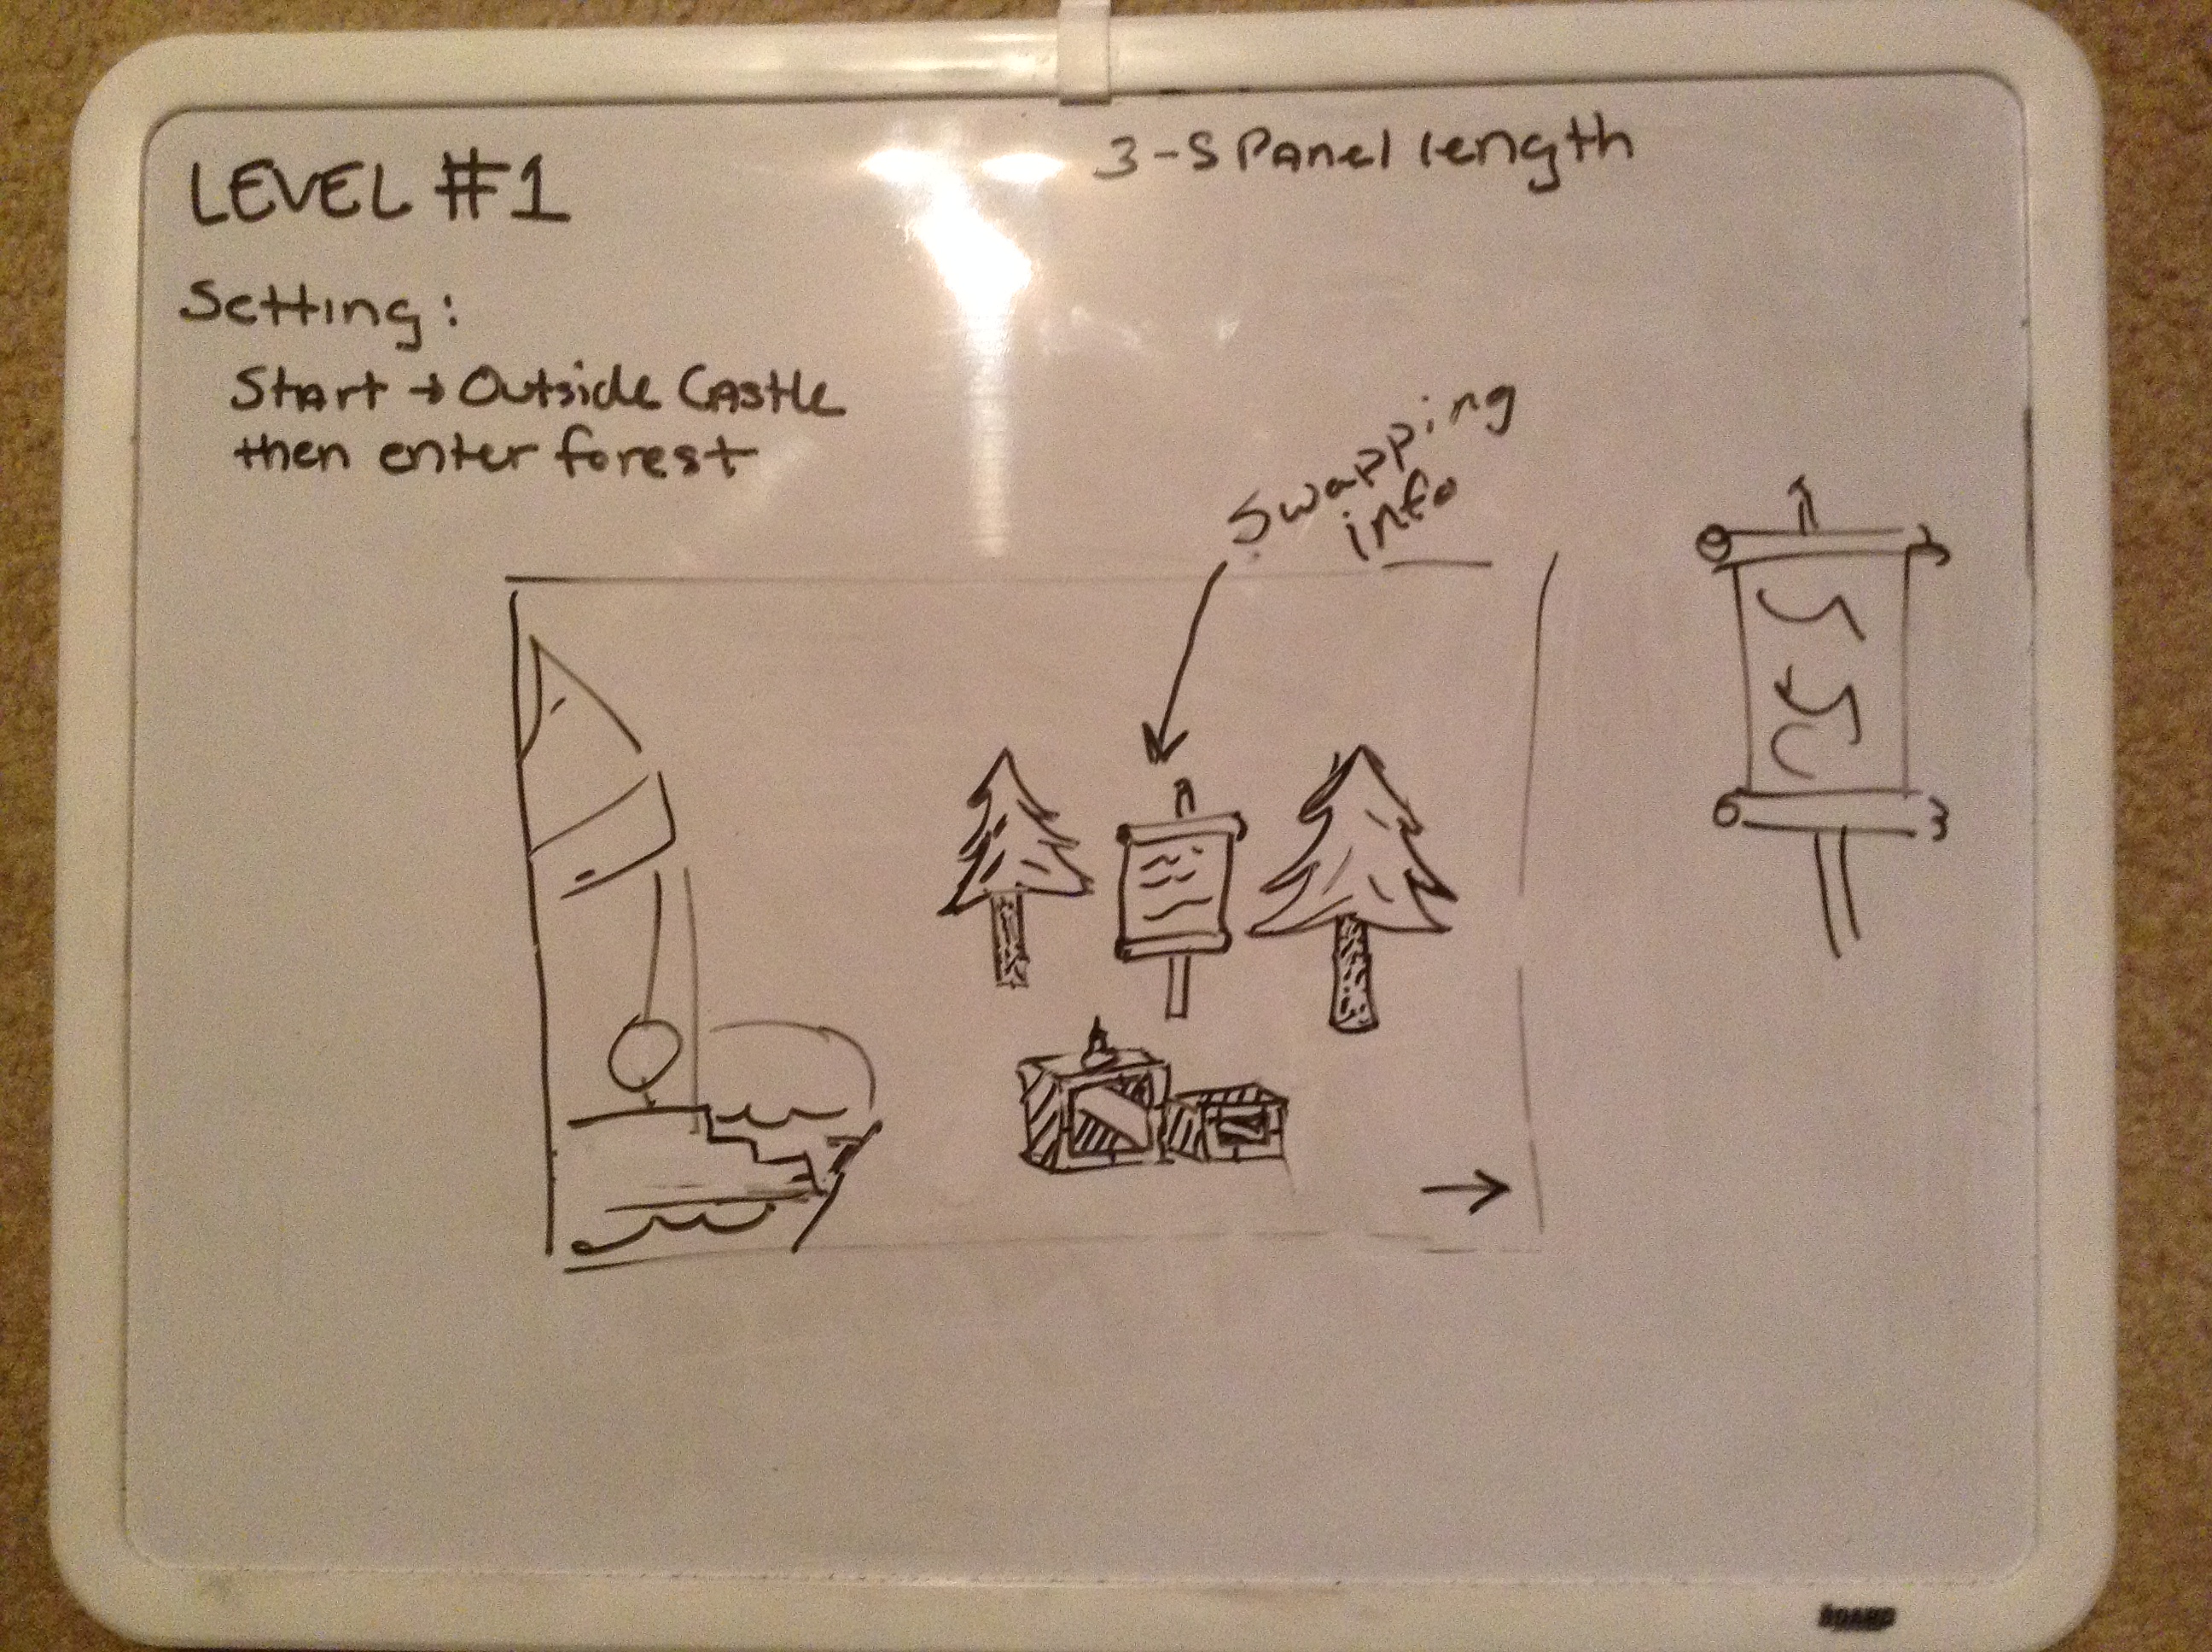 LEVEL #1
3-5 Panel length
Setting:
Start → Outside Castle
then enter forest
Swapping
info
BOARD